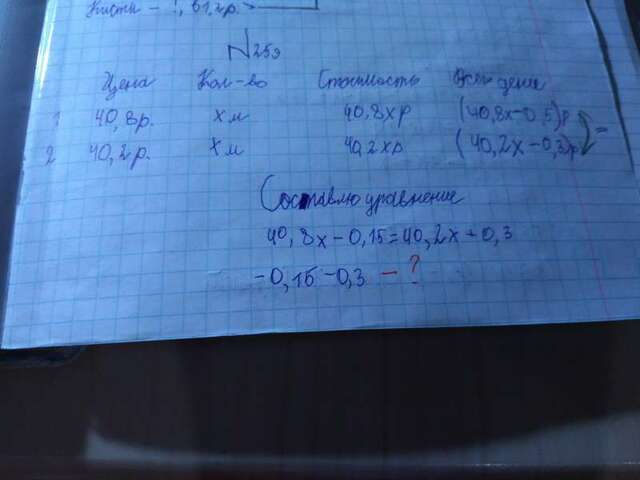 Кисти - ?, в 1,2 р.
N 259
Цена Кол-во Стоимость Всего денег
1 40,8р. х м 40,8хр (40,8х-0,15)р =
2 40,2р. х м 40,2хр (40,2х-0,3)р
Составлю уравнение
40,8х-0,15=40,2х+0,3
-0,15-0,3 - ?